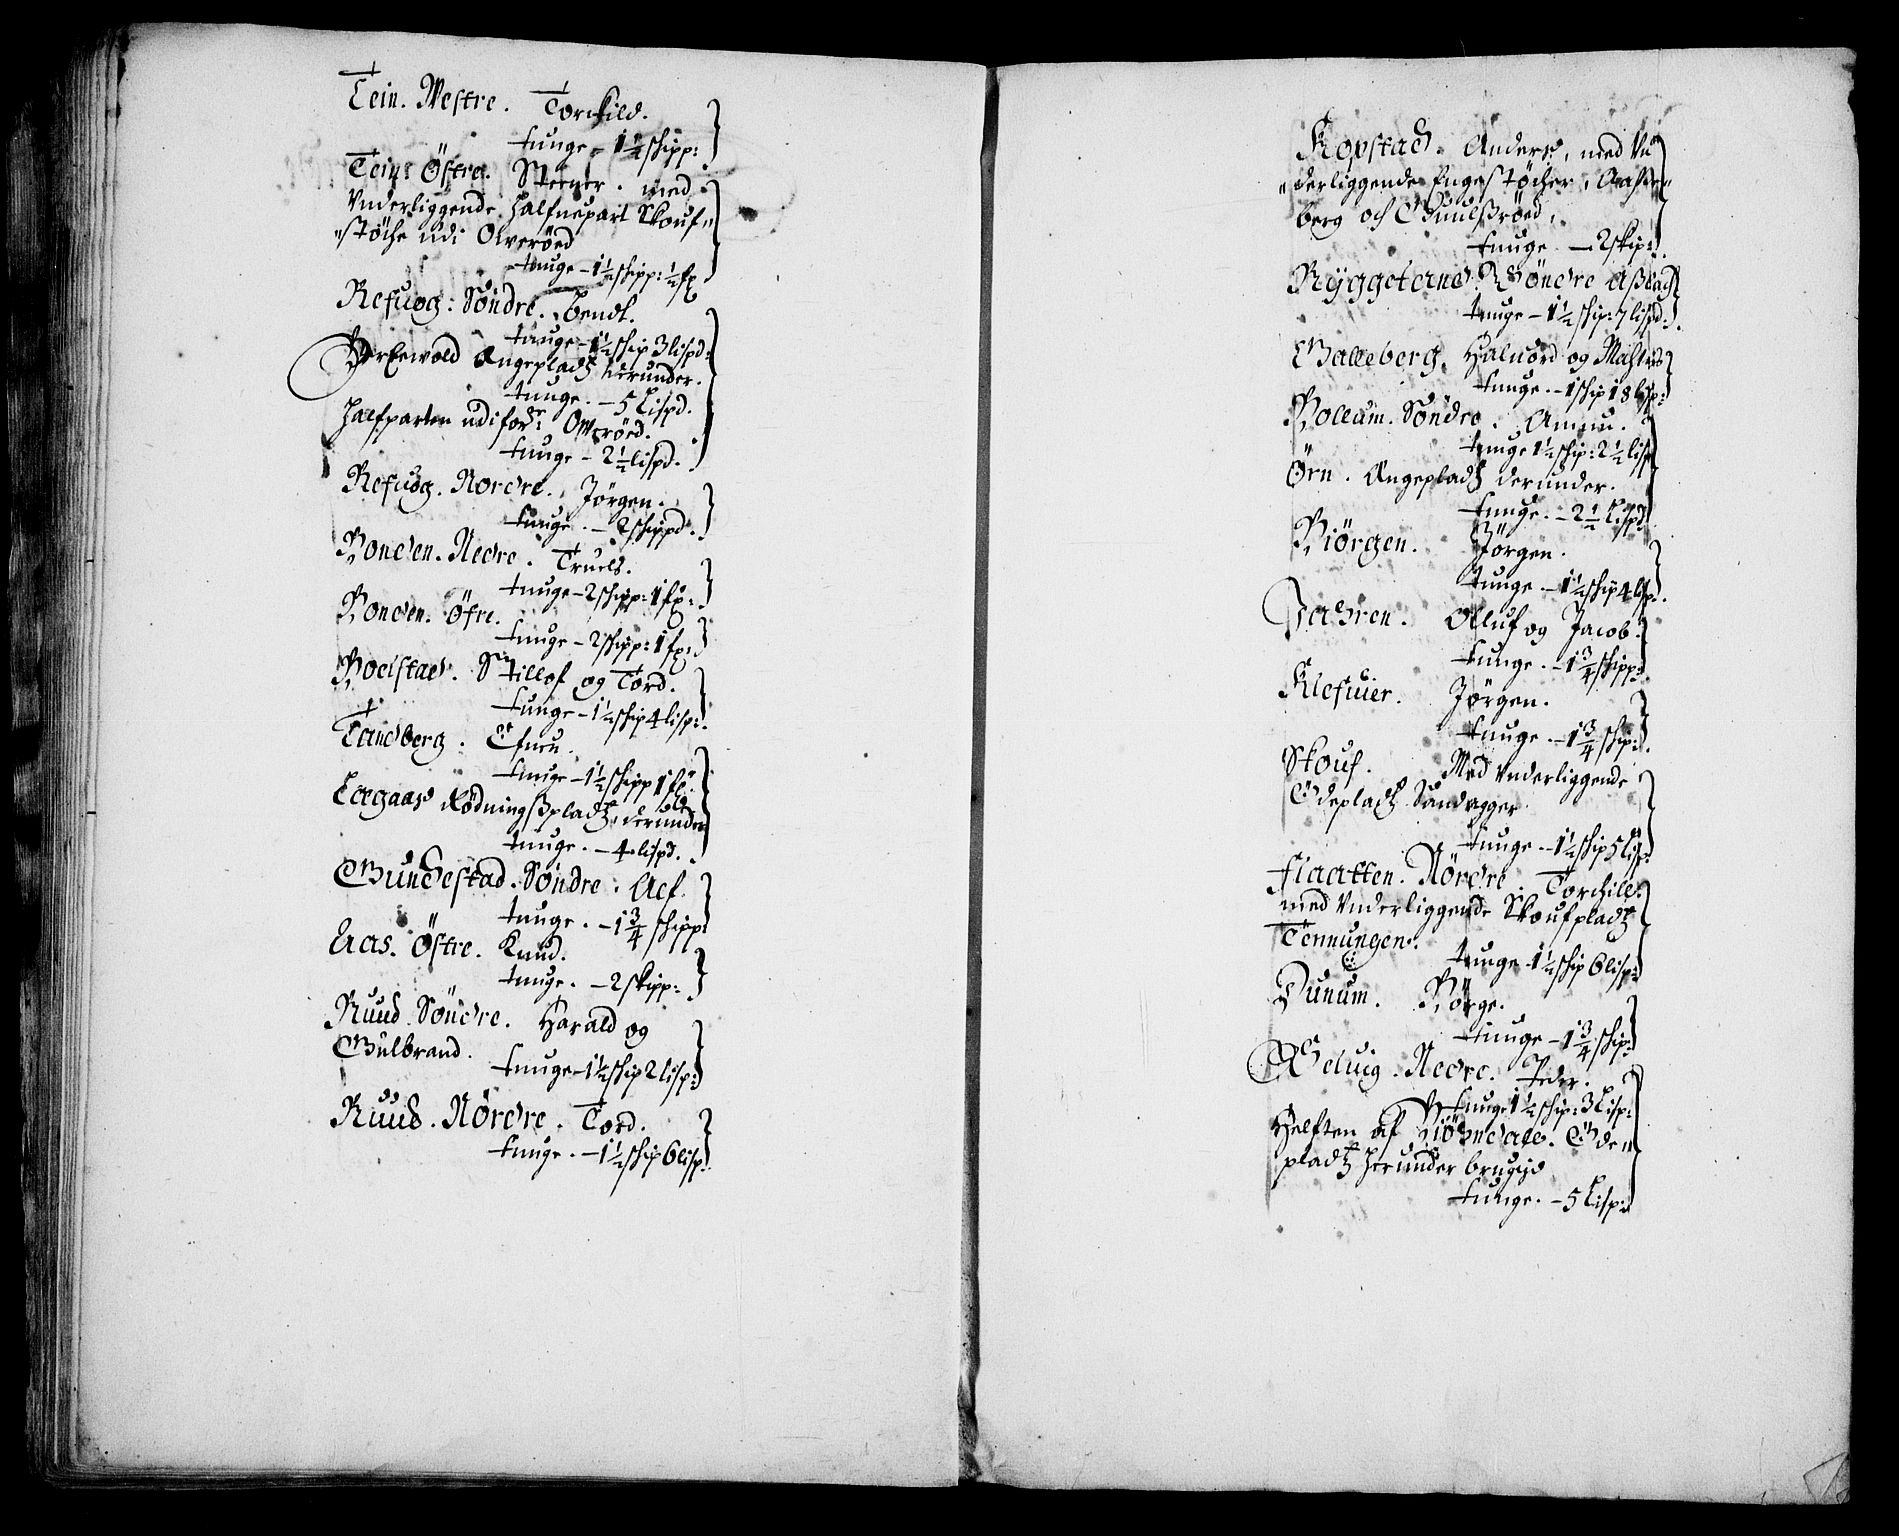 Tein. Westre. Torchild.
tunge – 1½ schipp:
Tein: Östre. Steener. med
Underliggende halfnepart Skouf„
„støche udi Olveröed
tunge – 1½ schipp: ½ fx
Refuog: Söndre. Bendt.
tunge – 1½ schip 3 lispd:
Engepladtz herunder.
tunge. – 5 Lispd.
Halfparten udi for: Olveröed.
tunge – 2½ lispd.
Refuog. Nordre. Jörgen.
tunge. – 2 schippd.
Bonden. Nedre. Truels.
tunge – 2 schipp: 1 fx:
Bonden. Öfre.
tunge – 2 schipp: 1 fx:
Boelstad. Stillof og Tord.
tunge – 1½ schip 4 lisp:
Tandberg.
tunge – 1½ schipp 1 fx:
Rödningßpladtz, derunder
tunge. – 4 lispd.
Gundestad. Söndre. Alf.
tunge. – 1¾ schipp:
Aas. Östre. Knud.
tunge. – 2 skipp:
Ruud. Söndre. Harald og
Gulbrand.
tunge – 1½ schip 2 lisp:
Ruud. Nördre. Tord.
tunge. – 1½ schip 6 lisp:
Kopstad. Anders, med Un
„derliggende Engestöcher, Aasne„
berg och
tunge – 2 skip:
Söndre Aßlach
tunge – 1½ schip: 7 lispd:
Galleberg. Haluord og
tunge. – 1 schip 18 lisp:
Bollum. Söndre. Amun.
tunge 1½ schip: 2½ lisp
Örn. Engepladtz derunder.
tunge. – 2½ Lispd
Biörgen. Jörgen.
tunge – 1½ schip 4 lisp:
Jahren. Olluf og Jacob.
tunge. – 1¾ schipp:
Klefuer. Jörgen.
tunge. – 1¾ schip:
Skouf. Med Underliggende
Ödepladtz Sandagger
tunge. – 1½ schip 5 lisp:
Flaatten. Nördre. Torchild.
med Underliggende Skoufpladtz
Tennungen.
tunge 1½ schip 6 lisp:
Dunum. Börge.
tunge – 1¾ schip:
Seluig. Nedre. Peder.
tunge 1½ schip: 3 Lisp:
Helften af Öde„
pladtz herunder brugis
tunge. – 5 Lisp: